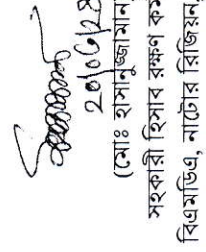 ২০/০৬/২৪
(মোঃ হাসানুজ্জামান)
সহকারী হিসাব রক্ষণ কর্ম
বিএমডিএ, নাটোর রিজিয়ন,